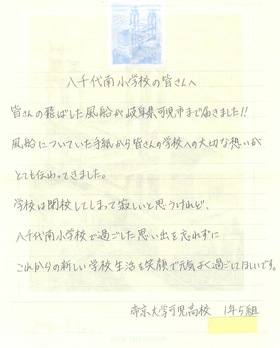 八千代南小学校の皆さんへ
皆さんの飛ばした風船が岐阜県可児市まで届きました!!
風船についていた手紙から皆さんの学校への大切な想いが
とても伝わってきました。
学校は閉校してしまって寂しいと思うけれど、
八千代南小学校で過ごした思い出を忘れずに
これからの新しい学校生活を笑顔で元気よく過ごしてほしいです。
帝京大学可児高校 1年5組